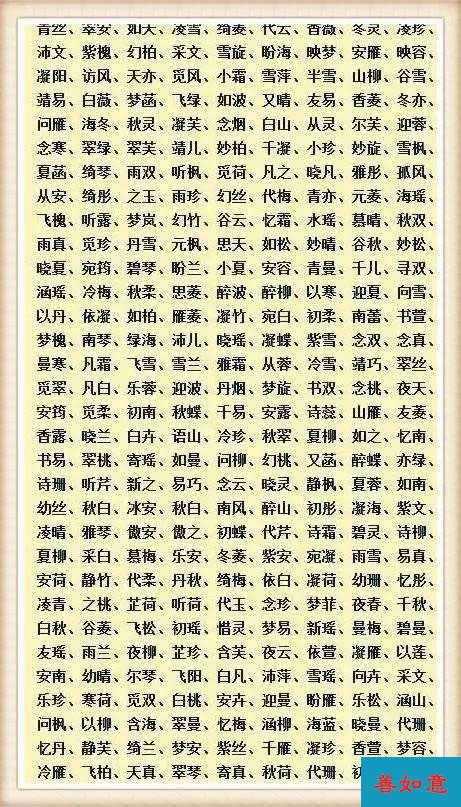 青丝、翠安、如天、凌雪、绮菱、代云、香薇、冬灵、凌珍、
沛文、紫槐、幻柏、采文、雪旋、盼海、映梦、安雁、映容、
凝阳、访风、天亦、觅风、小霜、雪萍、半雪、山柳、谷雪、
靖易、白薇、梦菡、飞绿、如波、又晴、友易、香菱、冬亦、
问雁、海冬、秋灵、凝芙、念烟、白山、从灵、尔芙、迎蓉、
念寒、翠绿、翠芙、靖儿、妙柏、千凝、小珍、妙旋、雪枫、
夏菡、绮琴、雨双、听枫、觅荷、凡之、晓凡、雅彤、孤风、
从安、绮彤、之玉、雨珍、幻丝、代梅、青亦、元菱、海瑶、
飞槐、听露、梦岚、幻竹、谷云、忆霜、水瑶、慕晴、秋双、
雨真、觅珍、丹雪、元枫、思天、如松、妙晴、谷秋、妙松、
晓夏、宛筠、碧琴、盼兰、小夏、安容、青曼、千儿、寻双、
涵瑶、冷梅、秋柔、思菱、醉波、醉柳、以寒、迎夏、向雪、
以丹、依凝、如柏、雁菱、凝竹、宛白、初柔、南蕾、书萱、
梦槐、南琴、绿海、沛儿、晓瑶、凝蝶、紫雪、念双、念真、
曼寒、凡霜、飞雪、雪兰、雅霜、从蓉、冷雪、靖巧、翠丝、
觅翠、凡白、乐蓉、迎波、丹烟、梦旋、书双、念桃、夜天、
安筠、觅柔、初南、秋蝶、千易、安露、诗蕊、山雁、友菱、
香露、晓兰、白卉、语山、冷珍、秋翠、夏柳、如之、忆南、
书易、翠桃、寄瑶、如曼、问柳、幻桃、又菡、醉蝶、亦绿、
诗珊、听芹、新之、易巧、念云、晓灵、静枫、夏蓉、如南、
幼丝、秋白、冰安、秋白、南风、醉山、初彤、凝海、紫文、
凌晴、雅琴、傲安、傲之、初蝶、代芹、诗霜、碧灵、诗柳、
夏柳、采白、慕梅、乐安、冬菱、紫安、宛凝、雨雪、易真、
安荷、静竹、代柔、丹秋、绮梅、依白、凝荷、幼珊、忆彤、
凌青、之桃、芷荷、听荷、代玉、念珍、梦菲、夜春、千秋、
白秋、谷菱、飞松、初瑶、惜灵、梦易、新瑶、曼梅、碧曼、
友瑶、雨兰、夜柳、芷珍、含芙、夜云、依萱、凝雁、以莲、
安南、幼晴、尔琴、飞阳、白凡、沛萍、雪瑶、向卉、采文、
乐珍、寒荷、觅双、白桃、安卉、迎曼、盼雁、乐松、涵山、
问枫、以柳、含海、翠曼、忆梅、涵柳、海蓝、晓曼、代珊、
忆丹、静芙、绮兰、梦安、紫丝、千雁、凝珍、香萱、梦容、
冷雁、飞柏、天真、翠琴、寄真、秋荷、代珊、初
善如意